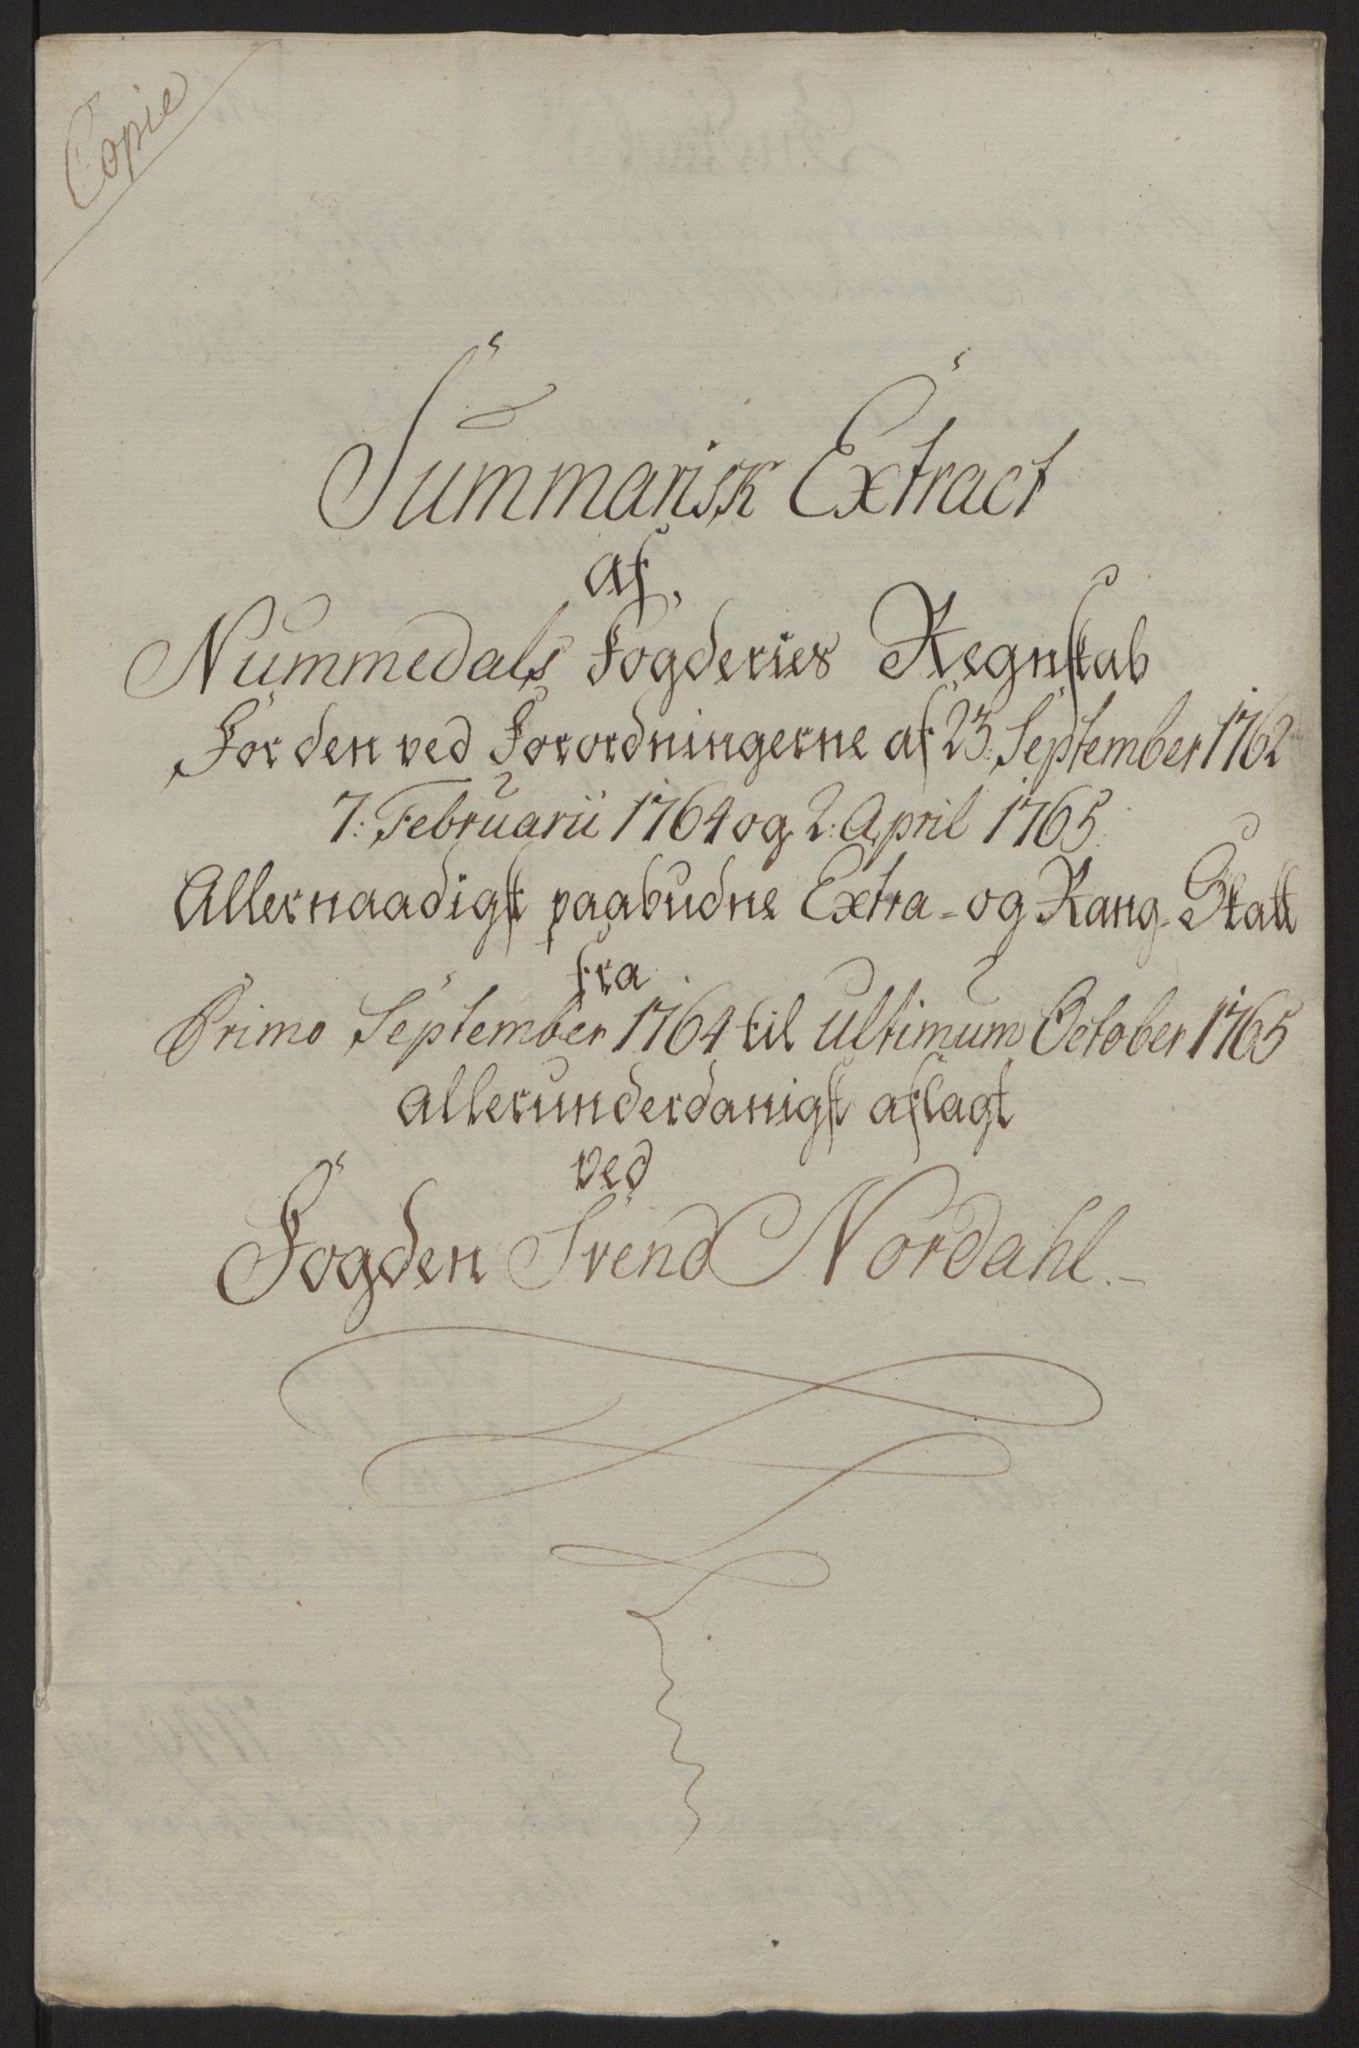 Copie
Summarisk Extract
af
Nummedals Fogderies Regnskab
For den ved Forordningerne af 23: September 1762
7: Februarii 1764 og 2: April 1765
Allernaadigst paabudne Extra- og Rang-Skatt
fra
Primo September 1764 til ultimum October 1765
allerunderdanigst aflagt
ved
Fogden Svend Nordahl.-